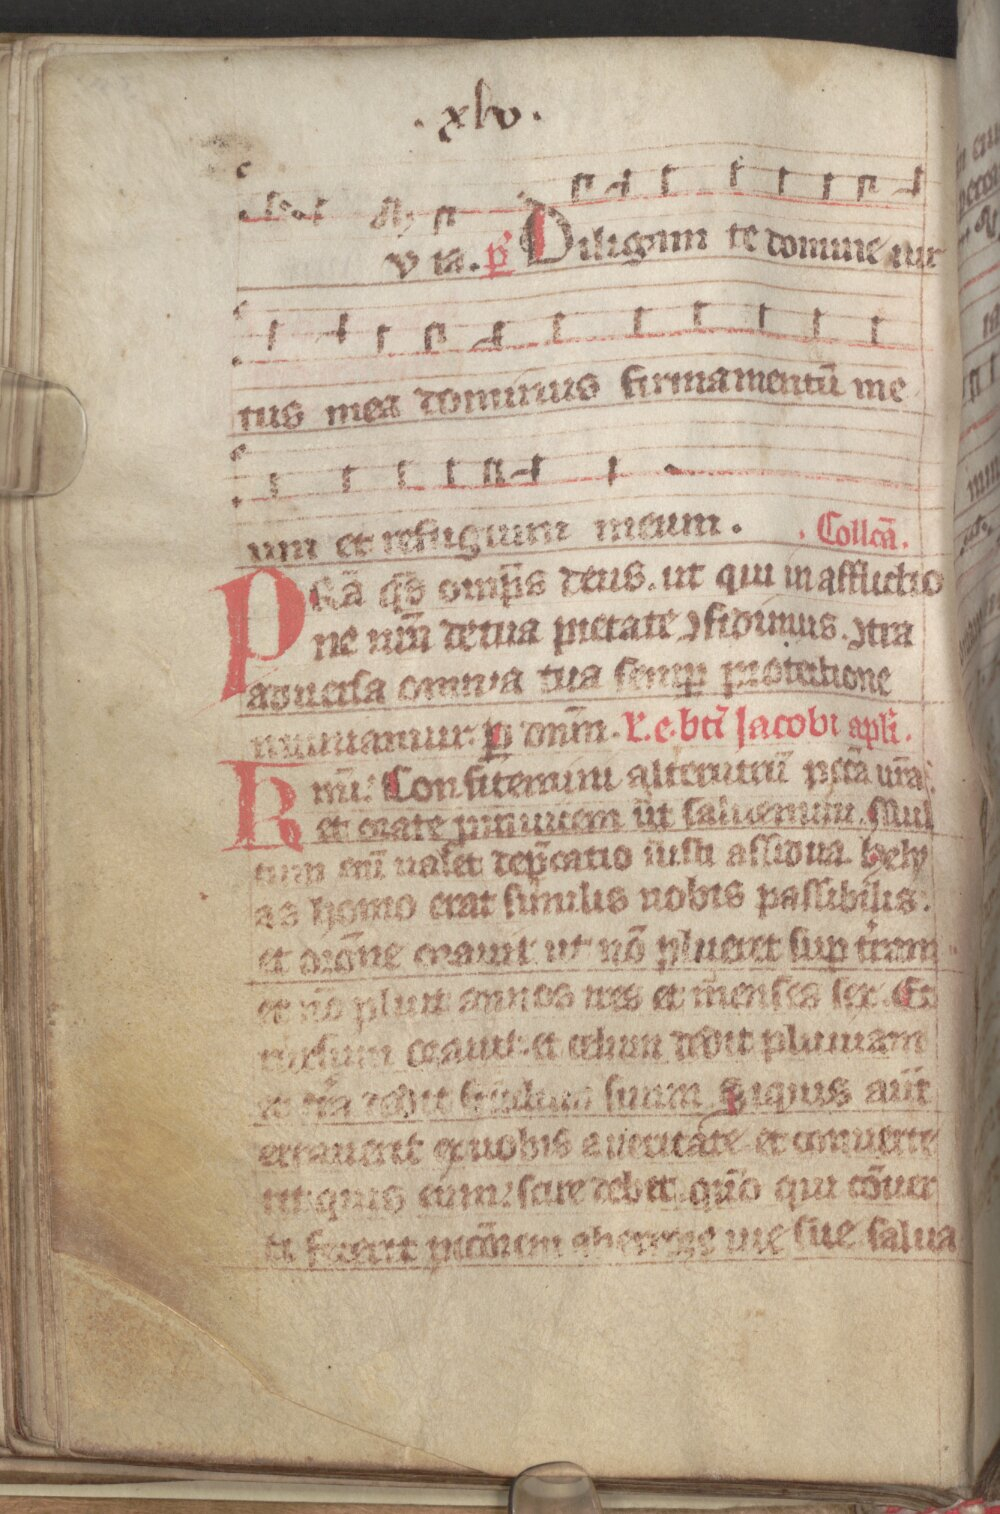 . xlv .
v ia. p̄s Diligam te domine uir
tus mea dominus firmamentū me
um et refugium meum. . Collcā.
PRā qs̄ omp̄s deus. ut qui in afflictio
ne nr̄a de tua pietate ꝯfidimus. ꝯtra
aduersa omnia tua semꝑ protectione
muniamur. ꝑ dn̄m. L. e. bt̄i Jacobi apl̄i.
Kmī. Confitemini alterutrū pctā ur̄a.
et orate ꝓ inuicem ut saluemini. Mul
tum eni ualet dep̄catio iusti assidua. hely
as homo erat similis nobis passibilis.
et or̄one orauit ut nō plueret suꝑ tr̄am
et nō pluit annos tres et menses sex. Et
rursum orauit. et celum dedit pluuiam
et tr̄a dedit fructum suum. Siquis aūt
errauerit ex uobis a ueritate et conuerte
rit quis eum. scire debet. qm̄o qui cōuer
ti fecerit pctōrem ab errore uie sue salua